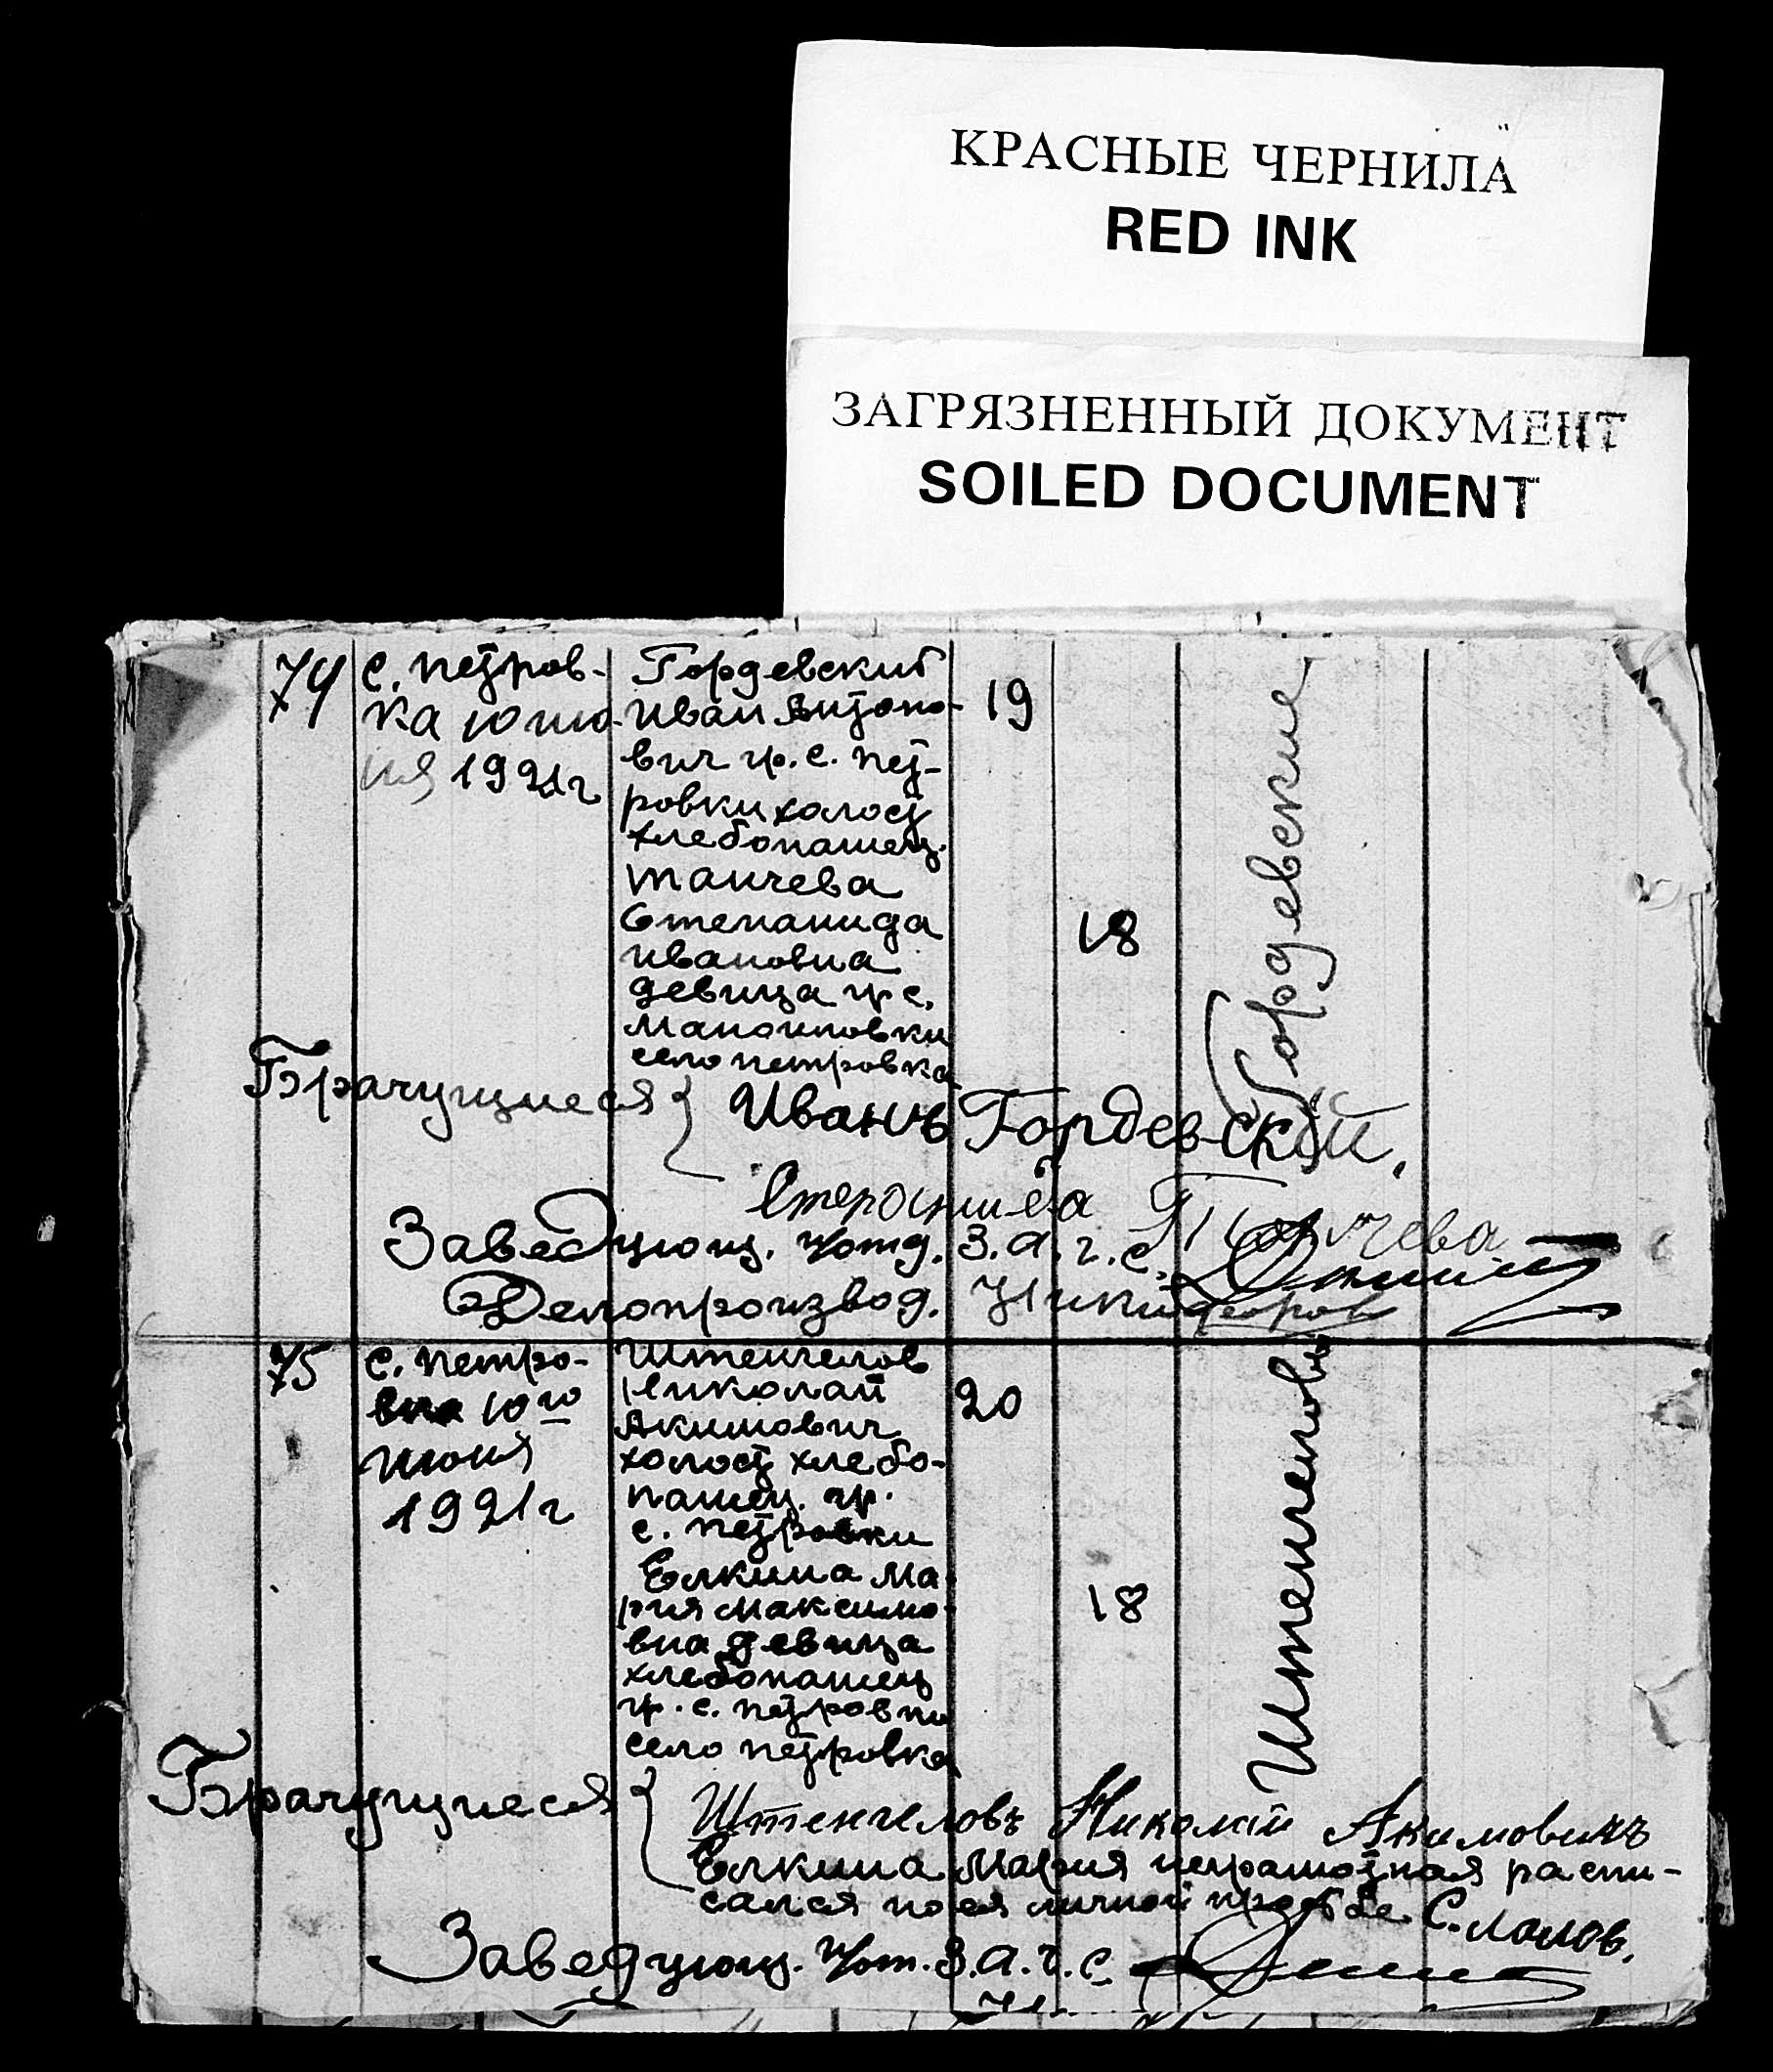 КРАСНЫЕ ЧЕРНИЛА
RED INK
ЗАГРЯЗНЕННЫЙ ДОКУМЕНТ
SOILED DOCUMENT
74
с. Петров-
ка 10 ию-
ня 1921г
Гордевский
Иван Антоно-
вич гр. с. Пет-
ровки холост
хлебопашец.
Танчева
Степанида
Ивановна
девица гр с.
село Петровка
19
18
Гордевские
Брачущиеся { Иванъ Гордевский.
Танчева
Заведующ. п/отд. З.А.Г.С.
Делопроизвод. Никифоров
75
с. Петро-
вка 10го
июня
1921г
Штенгелов
Николай
Акимович
холост хлебо-
пашец. гр.
с. Петровки
Елкина Ма-
рия Максимо-
вна девица
хлебопашец
гр. с. Петровки
село Петровка
20
18
Штенгеловы
Брачущиеся { Штенгеловъ Николай Акимовичъ
Елкина Мария неграмотная распи-
сался по ея личной прозьбе С.
Заведующ. п/от. З.А.Г.С.